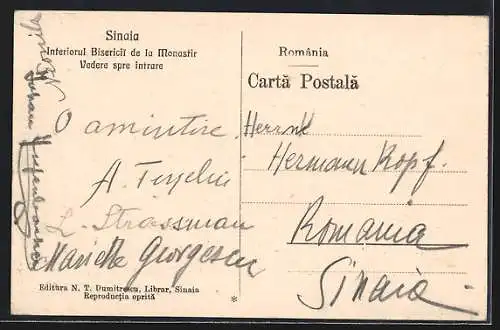 Sinaia
Interiorul Bisericii de la Monastir
Vedere spre intrare
O amintire
L. Strassman
Mariette Georgescu
Editura N. T. Dumitrescu, Librar, Sinaia
Reproducția oprită
România
Cartă Postală
Hermann Kopf.
Romania
Sinaia
*